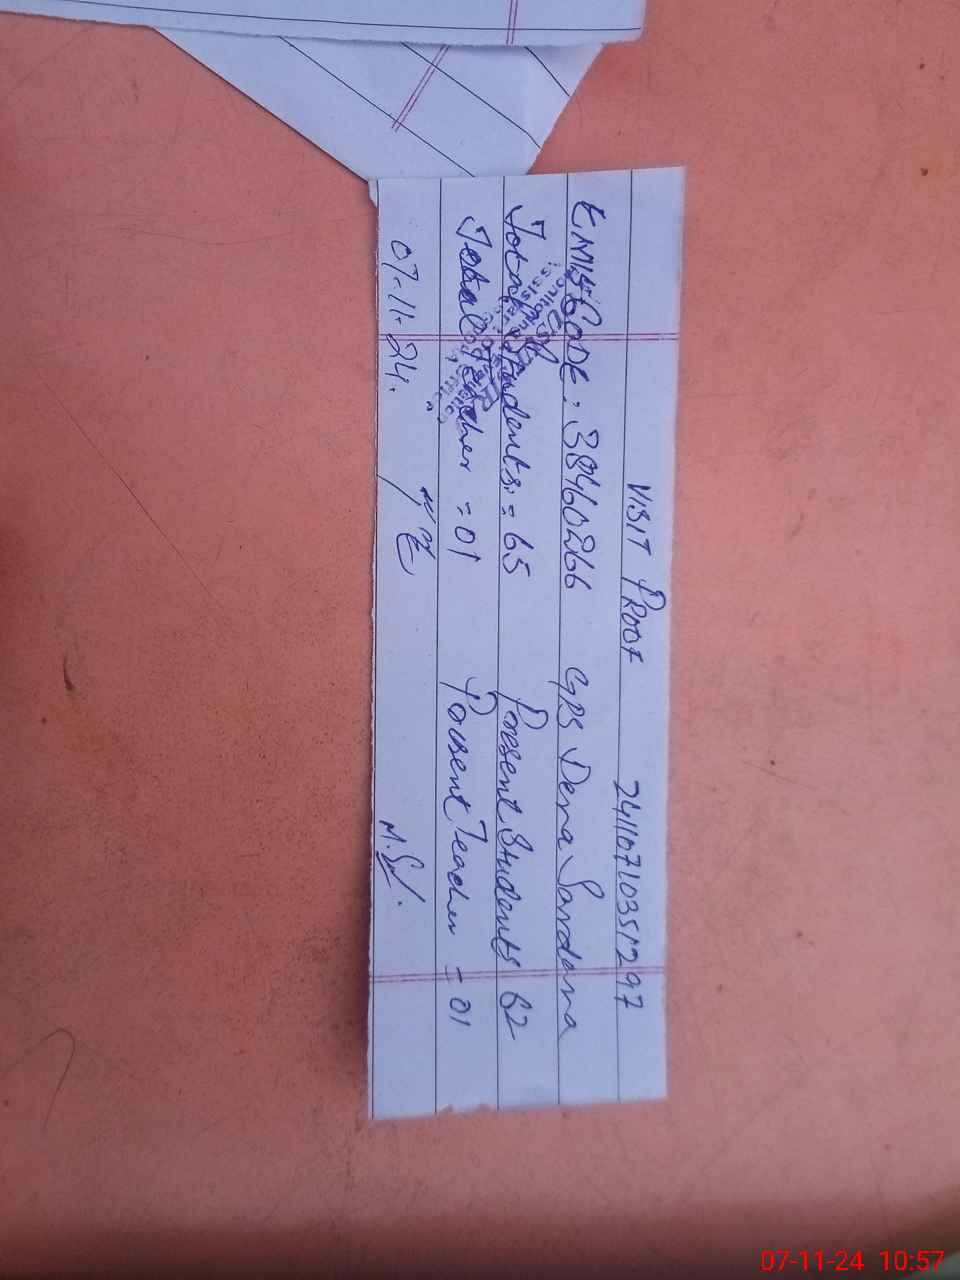 VISIT PROOF 24110710351297
EMIS CODE: 38460266 GPS Dera Sardana
Total Students = 65 Present Students 62
Total Teacher = 01 Present Teacher = 01
07-11-24.
07-11-24 10:57